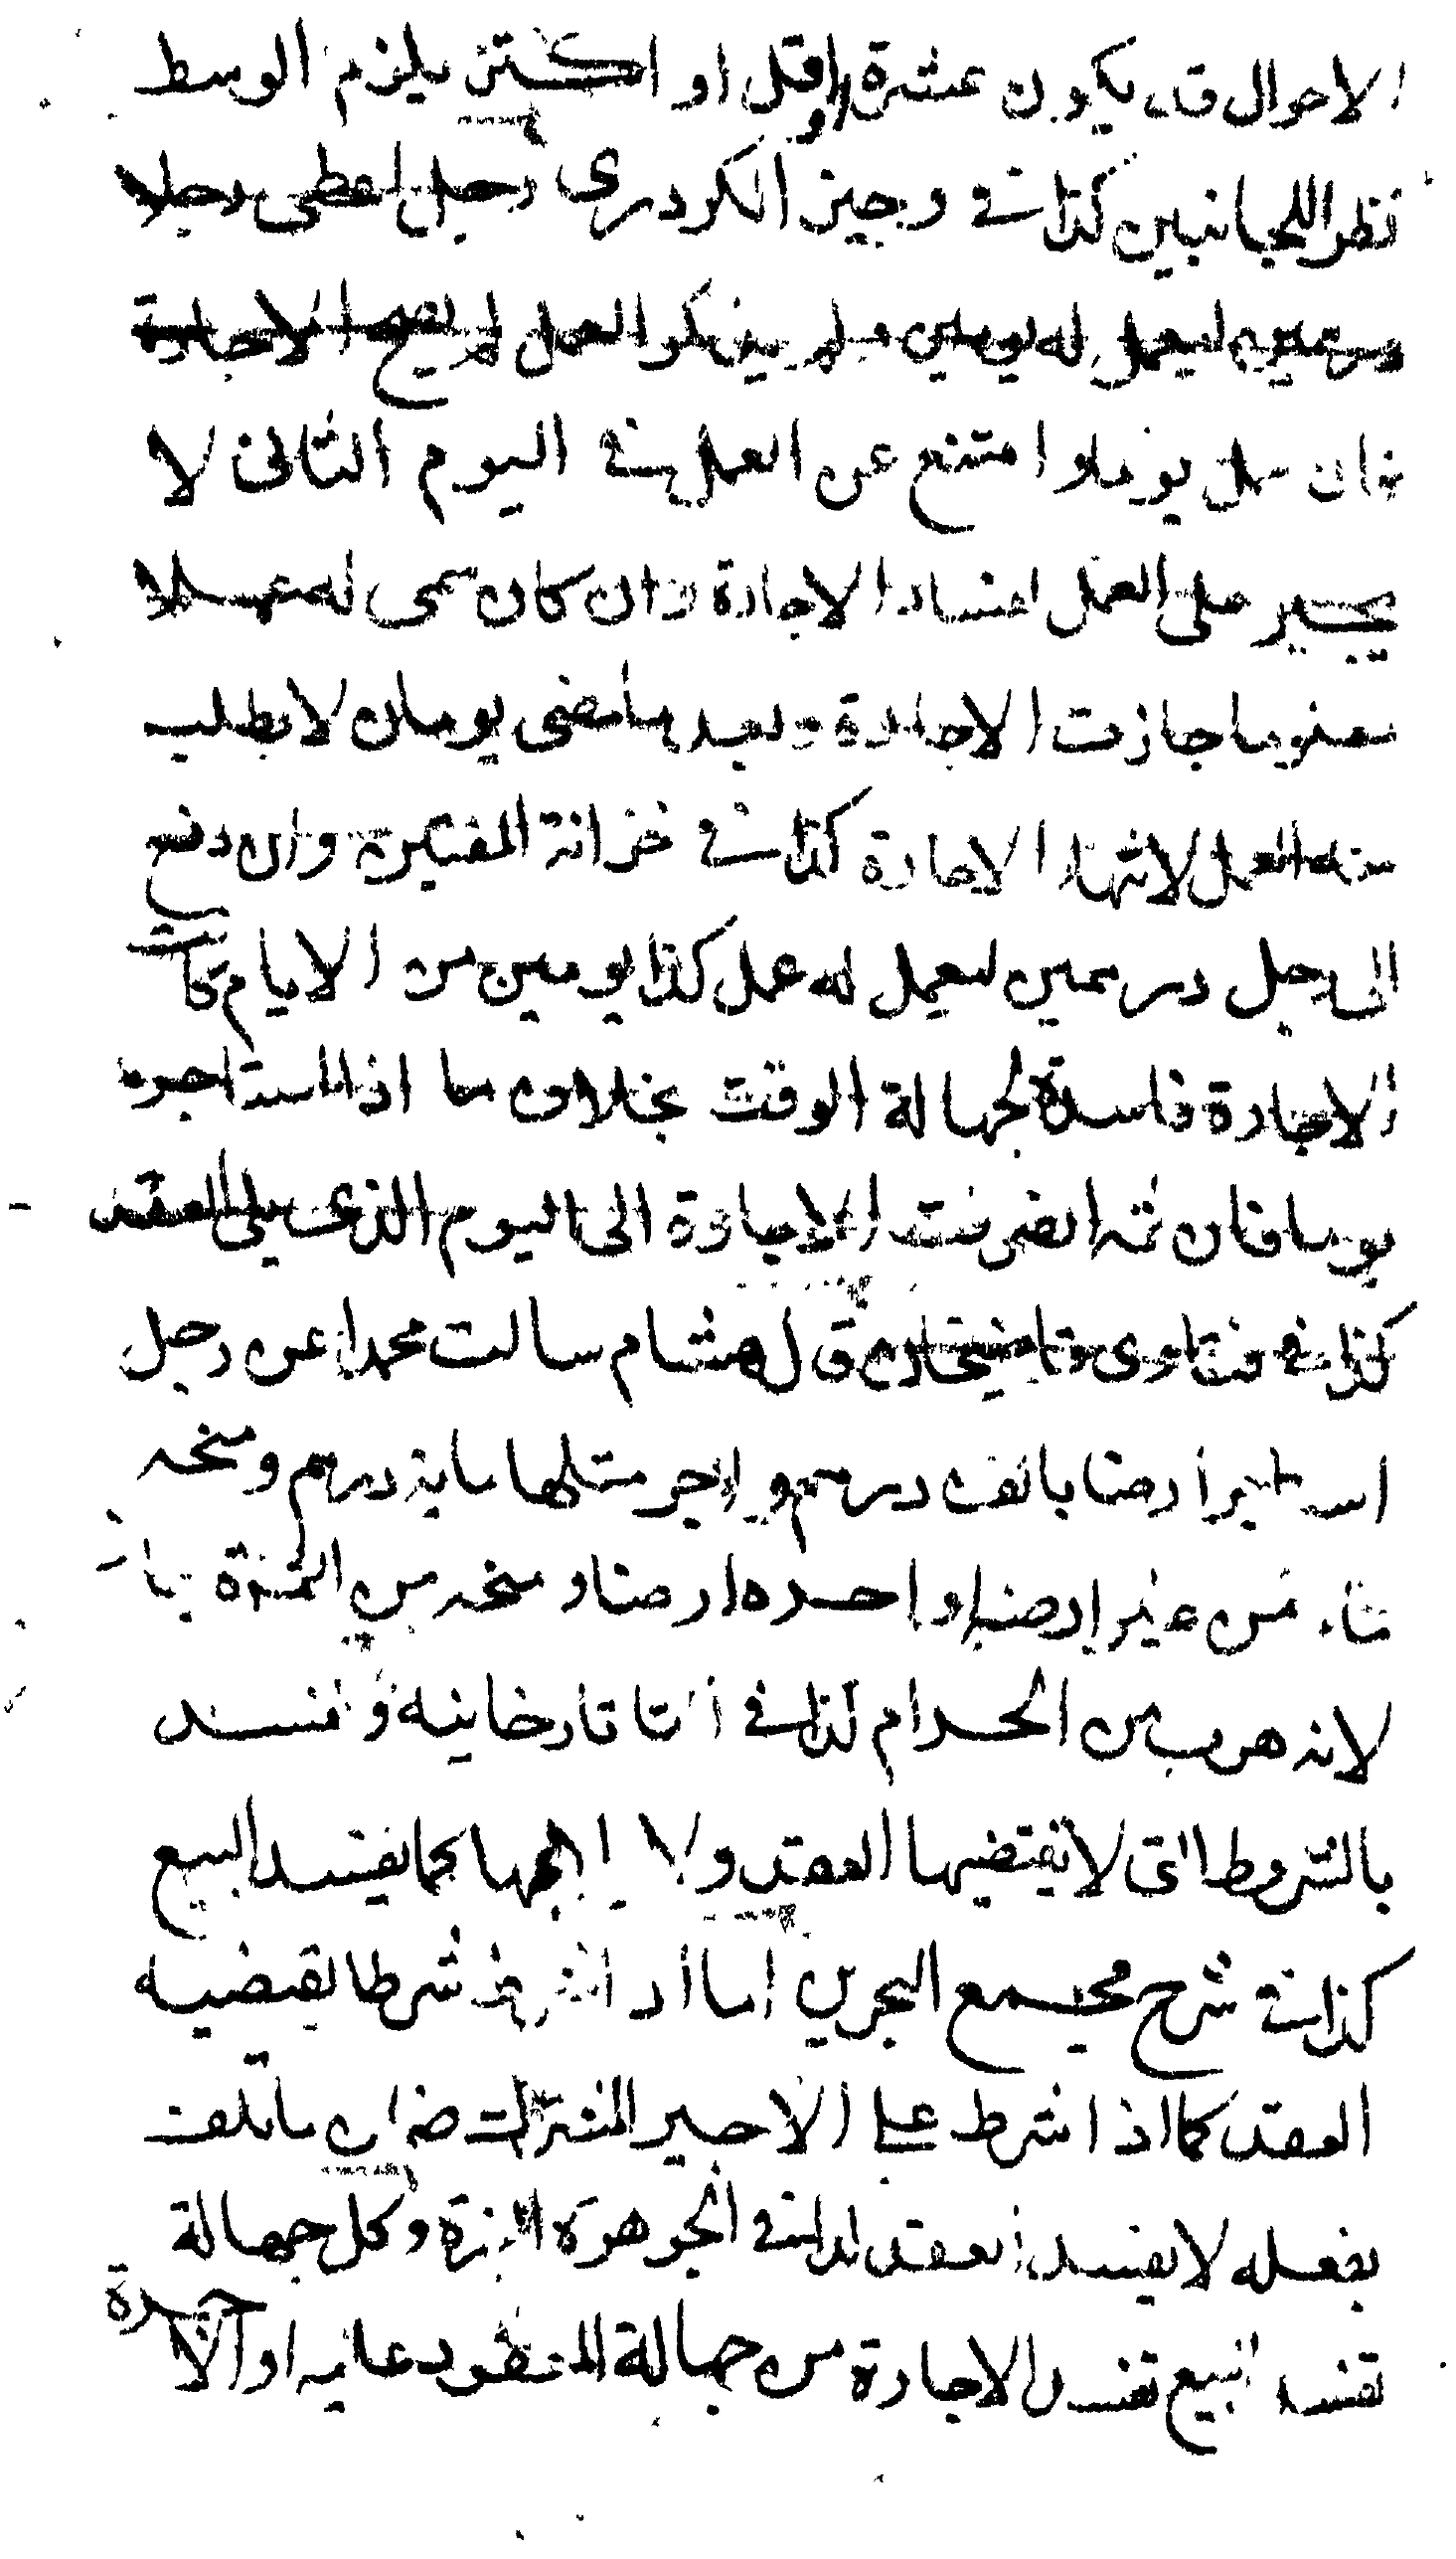 الاحوال قد يكون عشرة او اقل او اكثر يلزم الوسط
نظرا للجانبين كذا في وجيز الكردرى رجل اعطى رجلا
درهمين ليعمل له يومين ولم يذكر العمل لم يصح الاجارة
فان عمل يوما وامتنع عن العمل في اليوم الثانى لا
يجبر على العمل لفساد الاجارة وان كان سمى له عملا
معلوما جازت الاجارة وبعد ما مضى يومان لا يطلب
منه العمل لانتهاء الاجارة كذا في خزانة المفتين وان دفع
الى رجل درهمين ليعمل له عمل كذا يومين من الايام كانت
الاجارة فاسدة لجهالة الوقت بخلاف ما اذا استاجره
يوما فان ثمه انصرفت الاجارة الى اليوم الذى يلى العقد
كذا في فتاوى قاضيخان قال هشام سالت محمدا عن رجل
استاجر ارضا بالف درهم واجر مثلها ماية درهم ومنحه
من غير ارضه او احده ارضا ومنحه من
لانه هرب من الحرام كذا في التاتارخانية وتفسد
بالشروط التى لا تقتضيها العقد ولا كما يفسد البيع
كذا في شرح مجمع البحرين اما اذا شرط شرطا يقتضيه
العقد كما اذا شرط على الاجير المشترك ضمان ما تلف
بفعله لا يفسد العقد كذا في الجوهرة النيرة وكل جهالة
تفسد البيع تفسد الاجارة من جهالة المعقود عليه او الاجرة